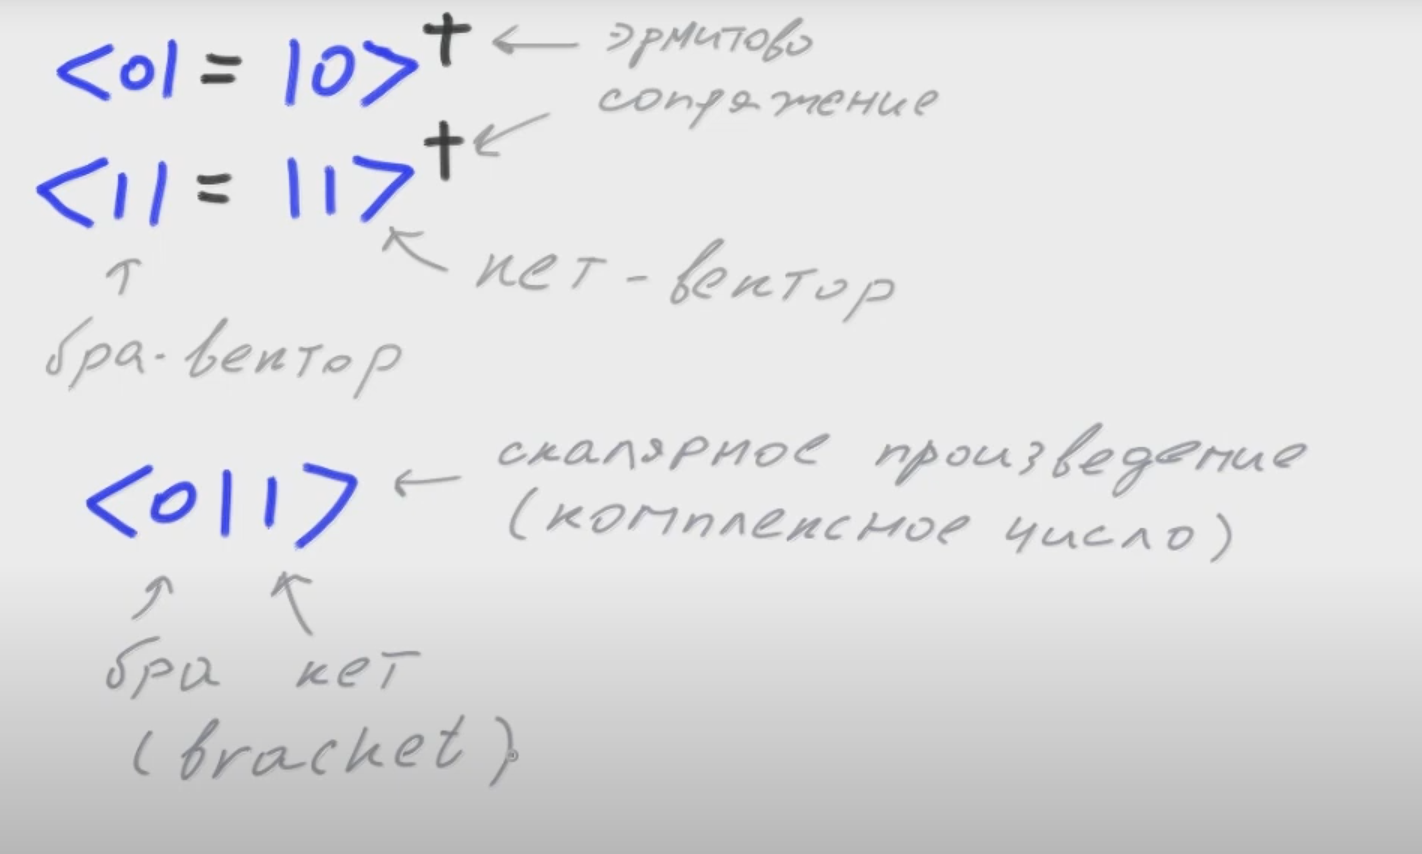 <0| = |0>† ← эрмитово
сопряжение
<1| = |1>†
кет-вектор
бра-вектор
<0|1> ← скалярное произведение
(комплексное число)
бра кет
(bracket)